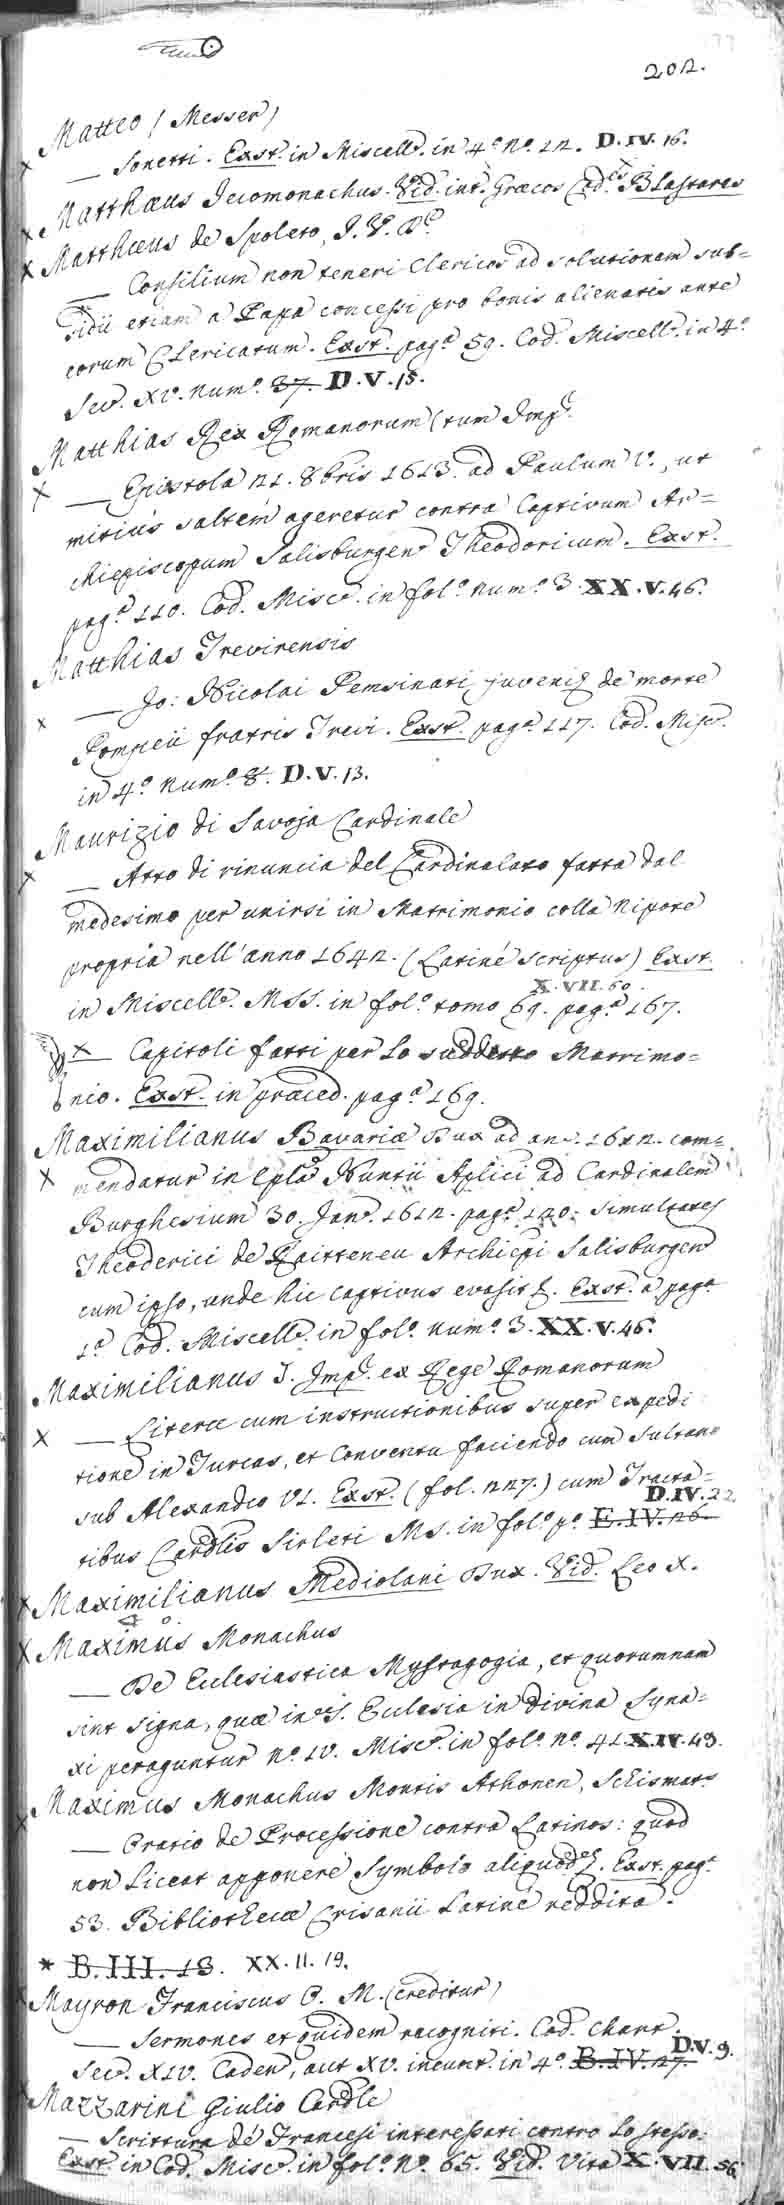 202.
Matteo (Messer)
— Sonetti. Exst. in Miscell. in 4.º Nº. 12. D.IV.16.
Matthæus Jeromonachus. Vid. int. Græcos Cod.es Blastares
Matthæus de Spoleto, J.V.D.
— Consilium non teneri Clericos ad solutionem sub=
sidii etiam a Papa concessi pro bonis alienatis ante
eorum Clericatum. Exst. pag.ª 59. Cod. Miscell. in 4.º
Sec. XV. Num.º 37. D.V.15.
Matthias Rex Romanorum (tum Imp.r
— Epistola 21. 8bris 1613. ad Paulum V., ut
mitiùs saltem ageretur contra Captivum Ar=
chiepiscopum Salisburgen. Theodoricum. Exst.
pag.ª 110. Cod. Misc. in fol.º Num.º 3. XX.V.46.
Matthias Trevirensis
— Jo: Nicolai Pemsinati juvenis de morte
Pompeii fratris Trevi. Exst. pag.ª 117. Cod. Misc.
in 4.º Num.º 8. D.V.13.
Maurizio di Savoja Cardinale
— Atto di rinuncia del Cardinalato fatta dal
medesimo per unirsi in Matrimonio colla Nipote
propria nell'anno 1642. (Latinè scriptus) Exst.
X.VII.60.
in Miscell. MSS. in fol.º tomo 69. pag.ª 167.
— Capitoli fatti per lo suddetto Matrimo=
nio. Exst. in præced. pag.ª 169.
Maximilianus Bavariæ Dux ad an. 1612. com=
mendatur in Epla Nuntii Aplici ad Cardinalem
Burghesium 30. Jan. 1612. pag.ª 120. simultates
Theoderici de Raitteneu Archiepi Salisburgen
cum ipso, unde hic captivus evasit &. Exst. a pag.ª
1.ª Cod. Miscell. in fol.º Num.º 3. XX.V.46.
Maximilianus I. Imp.r ex Rege Romanorum
— Literæ cum instructionibus super expedi
tione in Turcas, et Conventu faciendo cum Sultano
sub Alexandro VI. Exst. (fol. 227.) cum Tracta=
D.IV.22.
tibus Cardlis Sirleti MS. in fol.º pº E.IV.26.
Maximilianus Mediolani Dux. Vid. Leo X.
Maximus Monachus
— De Ecclesiastica Mystagogia, et quorumnam
sint signa, quæ in S. Ecclesia in divina Syna=
xi peraguntur nº. IV. Misc. in fol.º nº. 41. X.IV.49.
Maximus Monachus Montis Athonen, Schismat.s
— Oratio de Processione contra Latinos: quod
non liceat apponere Symbolo aliquod &. Exst. pag.ª
53. Bibliothecæ Crisanii Latinè reddita.
* B.III.13. XX.II.19.
Mayron Franciscus O. M. (creditur)
— Sermones et quidem recogniti. Cod. Chart.
D.V.9.
Sec. XIV. Caden, aut XV. ineunt. in 4.º B.IV.27.
Mazzarini Giulio Cardle
— Scrittura de' Francesi interessati contro lo stesso.
Exst. in Cod. Misc. in fol.º Nº. 65. Vid. Vita X.VII.56.